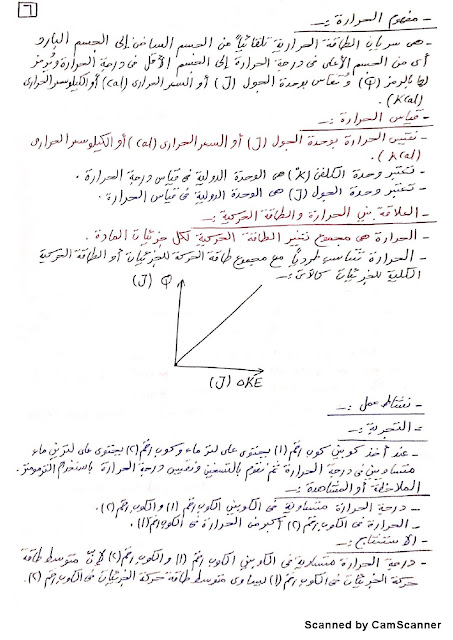 ٦
- مفهوم الحرارة :-
- هى سريان الطاقة الحرارية تلقائياً من الجسم الساخن إلى الجسم البارد
أى من الجسم الأعلى فى درجة الحرارة إلى الجسم الأقل فى درجة الحرارة ويُرمز
لها بالرمز (Q) وتُقاس بوحدة الجول (J) أو السعر الحرارى (cal) أو الكيلو سعر الحرارى
(Kcal).
- قياس الحرارة :-
- تقيس الحرارة بوحدة الجول (J) أو السعر الحرارى (cal) أو الكيلو سعر الحرارى
(Kcal).
- تعتبر وحدة الكلفن (K) هى الوحدة الدولية فى قياس درجة الحرارة.
- تعتبر وحدة الجول (J) هى الوحدة الدولية فى قياس الحرارة.
- العلاقة بين الحرارة والطاقة الحركية :-
- الحرارة هى مجموع تغير الطاقة الحركية لكل جزيئات المادة.
- الحرارة تتناسب طردياً مع مجموع طاقة الحركة للجزيئات أو الطاقة الحركية
الكلية للجزيئات كالآتى :-
(J) Q
(J) ΔKE
- نشاط عمل :-
= التجربة :-
- عند أخذ كوبين كوب رقم (1) يحتوى على لتر ماء وكوب رقم (2) يحتوى على لترين ماء
متساويين فى درجة الحرارة ثم نقوم بالتسخين ونقيس درجة الحرارة باستخدام الترمومتر.
الملاحظة أو المشاهدة :-
- درجة الحرارة متساوية فى الكوبين الكوب رقم (1) والكوب رقم (2).
- الحرارة فى الكوب رقم (2) أكبر من الحرارة فى الكوب رقم (1).
- الاستنتاج :-
- درجة الحرارة متساوية فى الكوبين الكوب رقم (1) والكوب رقم (2) لأن متوسط طاقة
حركة الجزيئات فى الكوب رقم (1) يساوى متوسط طاقة حركة الجزيئات فى الكوب رقم (2).
Scanned by CamScanner